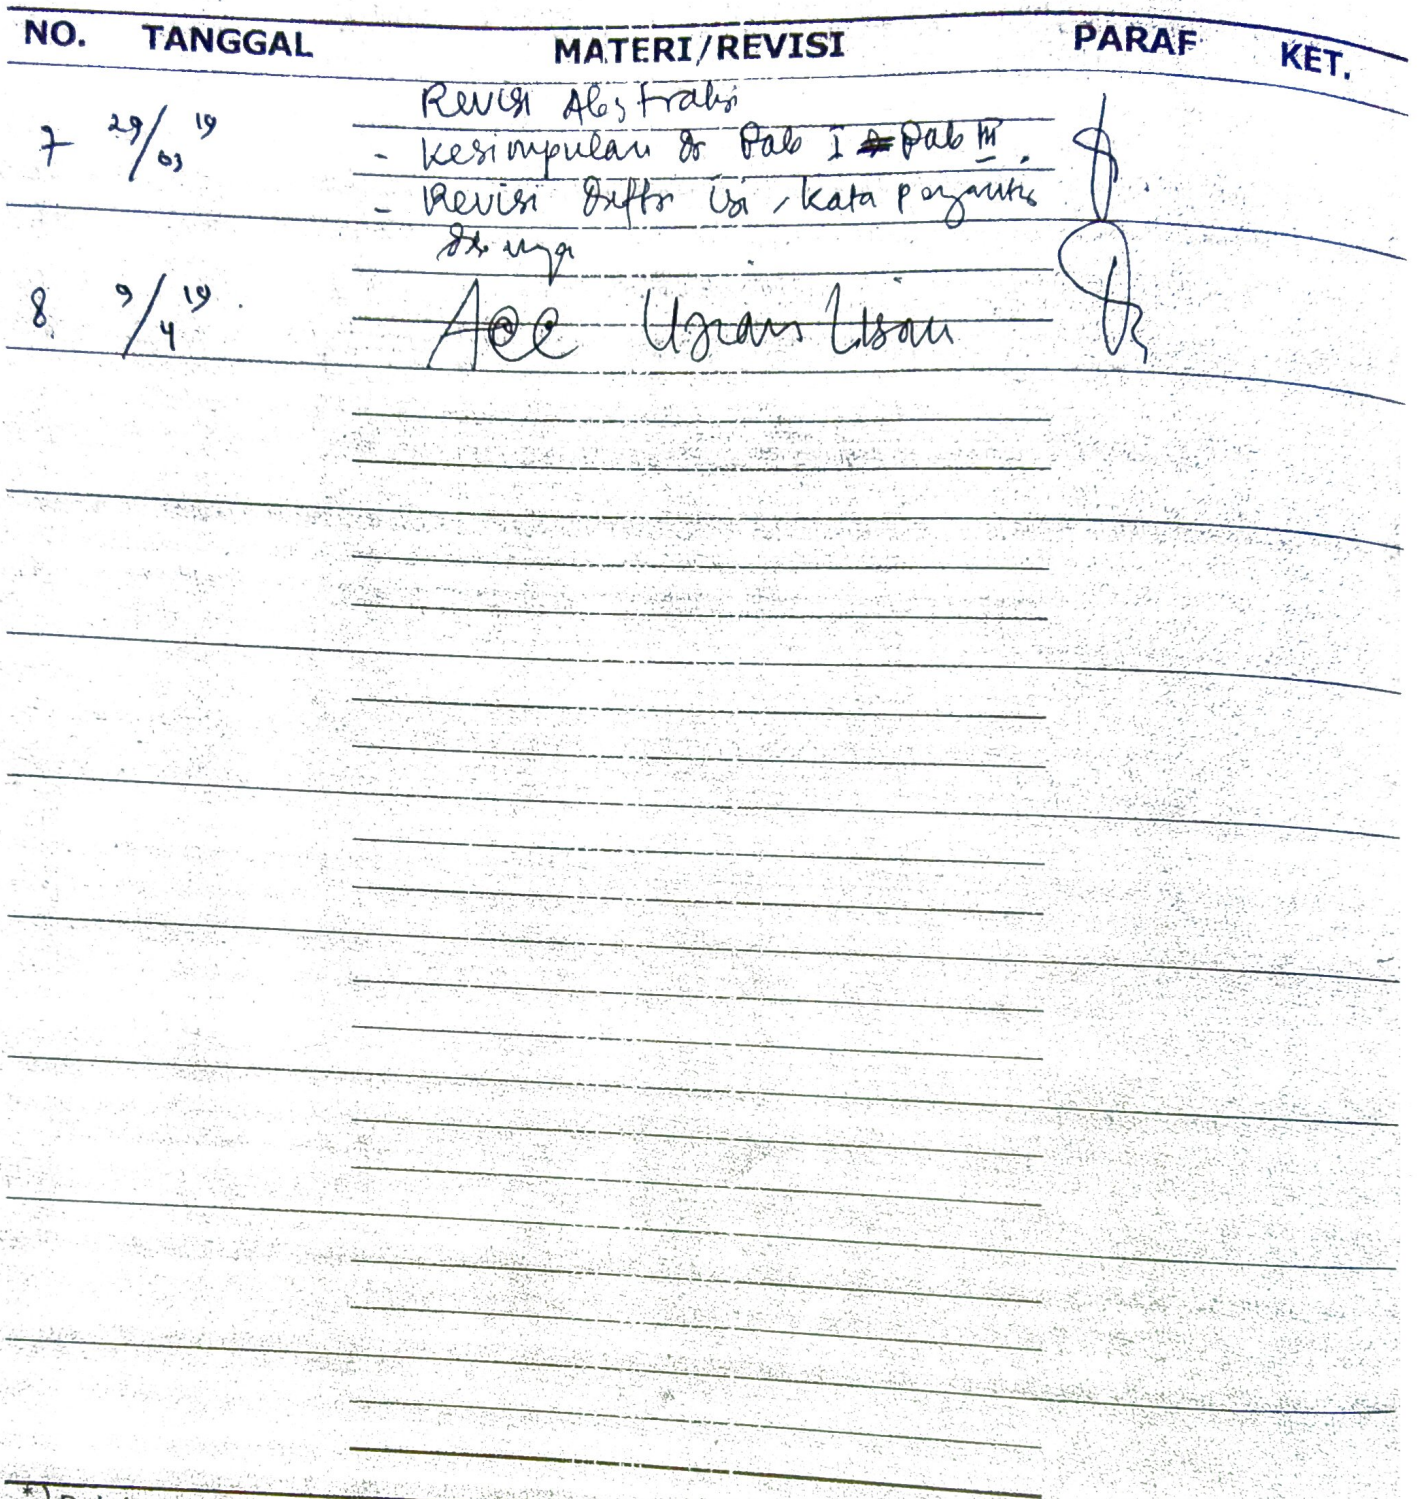 NO. TANGGAL MATERI/REVISI PARAF KET.
Revisi Abstraksi
7 29/03 19 - Kesimpulan & Bab I Bab III.
- Revisi Daftar isi, kata pengantar
8 9/4 19 Acc Ujian Lisan
*)